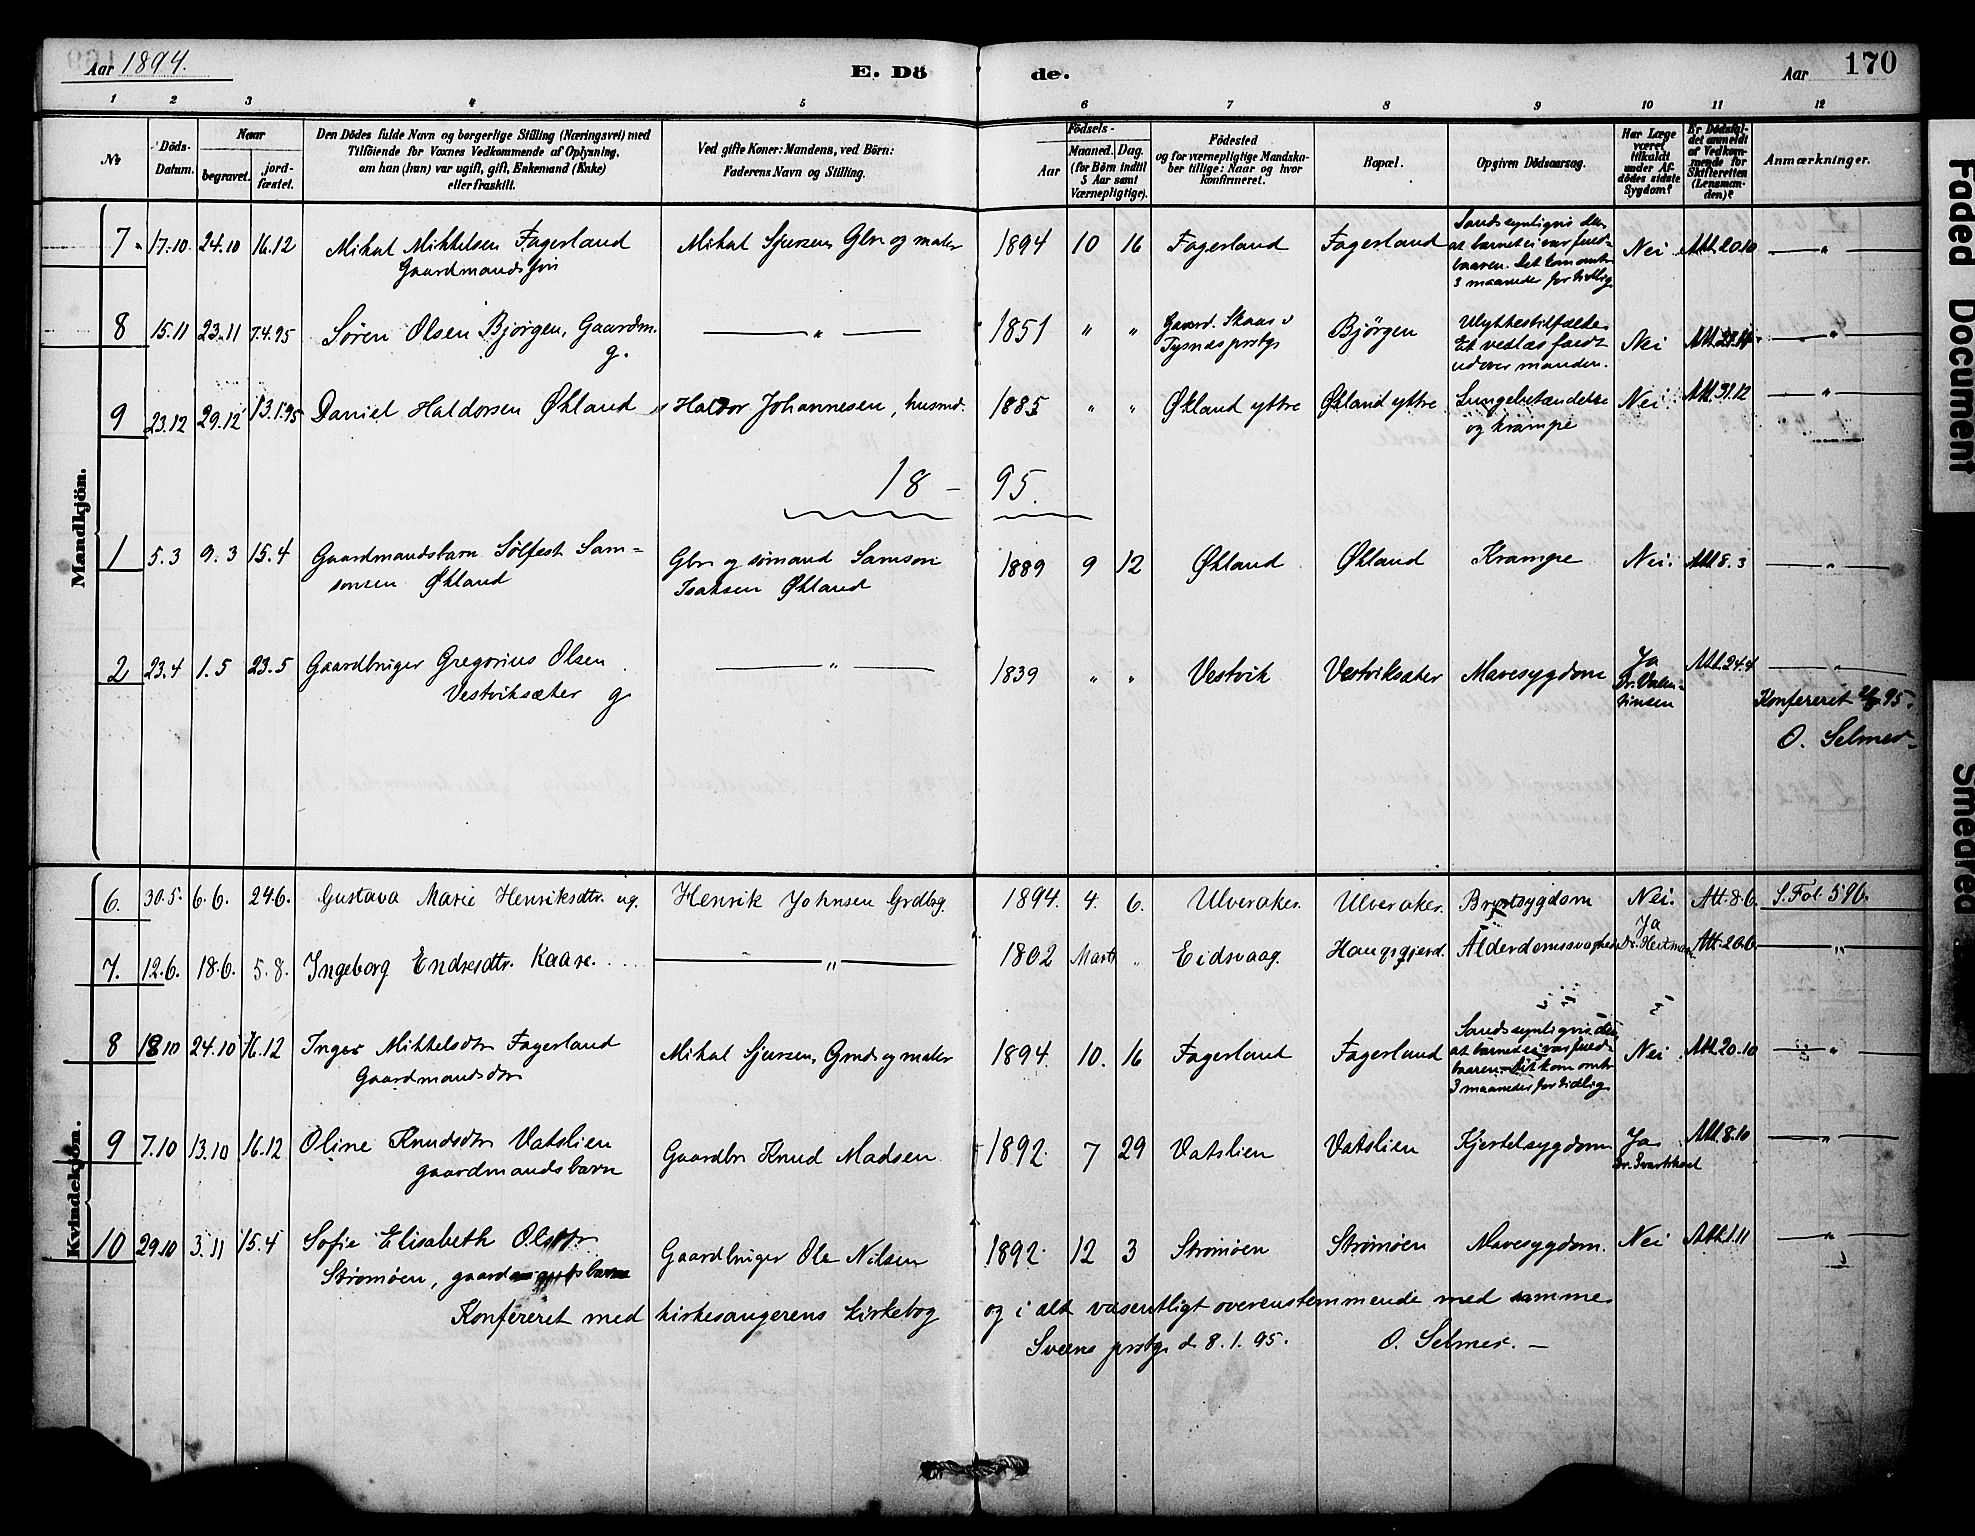 Aar 1894.
E. Dö de.
Aar 170
1 2 3 4 5 6 7 8 9 10 11 12
№
Döds-Datum.
Naar
begravet.
jord-fæstet.
Den Dödes fulde Navn og borgerlige Stilling (Næringsvei) med
Tilföiende for Voxnes Vedkommende af Oplysning,
om han (hun) var ugift, gift, Enkemand (Enke)
eller fraskilt.
Ved gifte Koner: Mandens, ved Börn:
Faderens Navn og Stilling.
Födsels-
Aar
Maaned. Dag.
(for Børn indtil
5 Aar samt
Værnepligtige).
Födested
og for værnepligtige Mandska-
ber tillige: Naar og hvor
konfirmeret.
Bopæl.
Opgiven Dödsaarsag.
Har Læge
været
tilkaldt
under Af-
dödes sidste
Sygdom?
Er Dödsfal-
det anmeldt
af Vedkom-
mende for
Skifteretten
(Lensman-
den)?
Anmærkninger.
Mandkjön.
7. 17.10 24.10 16.12 Mikal Mikkelsen Fagerland Mikal Sjursen, Gbr og maler 1894 10 16 Fagerland Fagerland Sandsynligvis den Nei Att. 20.10 — " —
Gaardmandssøn at barnet ei var fuld-
baaren. Det kom omtr.
3 maaneder for tidlig
8 15.11 23.11 7.4.95 Søren Olsen Bjørgen, Gaardm. — " — 1851 " " Gaard. Skaar i Bjørgen Ulykkestilfælde. Nei — " —
g. Tysnes prstgj Et vedlæs faldt
udover manden.
9 23.12 29.12 13.1.95 Daniel Haldorsen Økland Haldor Johannesen, husmd. 1885 " " Økland yttre Økland yttre Lungebetændelse Nei Att. 31.12 — " —
og krampe
18 — 95.
1 5.3 9.3 15.4 Gaardmandsbarn Sølfest Sam= Gbr og sømand Samson 1889 9 12 Økland Økland Krampe Nei. Att. 8.3 — " —
sonsen Økland Isaksen Økland
2 23.4 1.5 23.5 Gaardbruger Gregorius Olsen — " — 1839 " " Vestvik Vestviksæter Mavesygdom Ja Att. 24.4 — " —
Vestviksæter g Dr. Valen-
tinsen
Konfereret 95.
O. Selmer
Kvindekjön.
6. 30.5. 6.6. 24.6. Gustava Marie Henriksdtr. ug. Henrik Johnsen Grdbg. 1894. 4. 6. Ulveraker. Ulveraker. Brystsygdom Nei. Att. 8.6. S. Fol 596.
7. 12.6. 18.6. 5.8. Ingeborg Endresdtr. Kaare. — " — 1802 Marts " Eidsvaag. Haugsgjerd. Alderdomssvaghed Ja Att. 20.6. — " —
8 18.10 24.10 16.12 Inger Mikkelsdtr Fagerland Mikal Sjursen, Grnds og maler 1894. 10. 16 Fagerland Fagerland Sandsynligvis den Nei Att. 20.10 — " —
Gaardmandsdtr at barnet ei var fuld-
baaren. Det kom omtr
3 maaneder for tidlig
9 7.10 13.10 16.12 Oline Knudsdtr Vatslien Gaardbr Knud Madsen 1892. 7 29 Vatslien Vatslien Kjertelsygdom Ja Att. 8.10 — " —
gaardmandsbarn
10 29.10 3.11 15.4 Sofie Elisabeth Olsdtr Gaardbruger Ole Nilsen 1892. 12 3 Strømøen Strømøen Mavesygdom. Nei Att. 1.11 — " —
Strømøen, gaardmandsbarn
Konfereret med kirkesangerens kirkebog og i alt væsentligt overensstemmende med samme.
Sveens prstgj d. 8.1.95. O. Selmer. —
Faded Document
Smeared